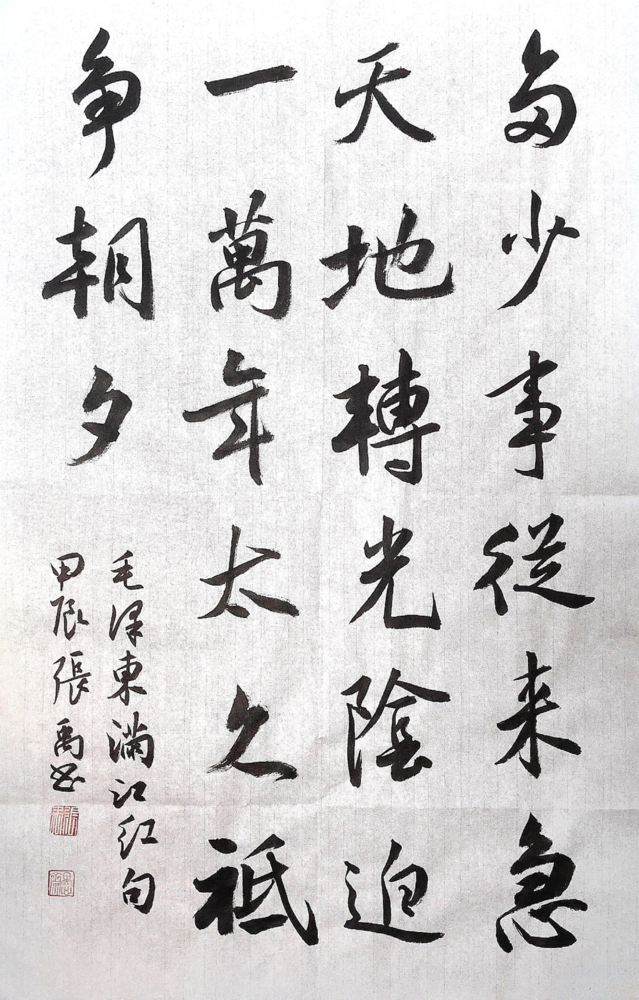 多少事從来急
天地轉光陰迫
一萬年太久祗
争朝夕
毛澤東滿江红句
甲辰張禹书